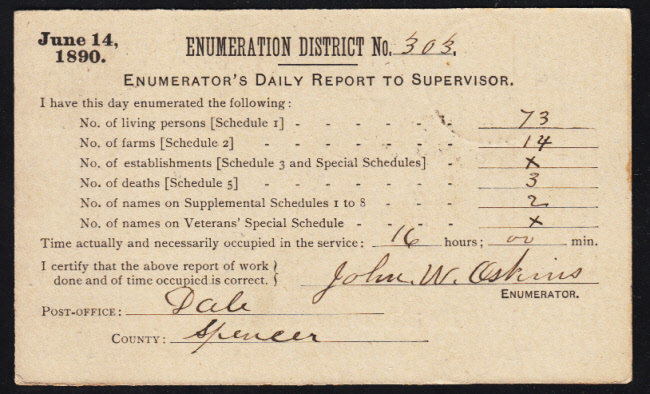 June 14, 1890.
ENUMERATION DISTRICT No. 303.
ENUMERATOR'S DAILY REPORT TO SUPERVISOR.
I have this day enumerated the following:
No. of living persons [Schedule 1] - - - - - - 73
No. of farms [Schedule 2] - - - - - - - 14
No. of establishments [Schedule 3 and Special Schedules] - x
No. of deaths [Schedule 5] - - - - - - - 3
No. of names on Supplemental Schedules 1 to 8 - - - 2
No. of names on Veterans' Special Schedule - - - - x
Time actually and necessarily occupied in the service: 16 hours; 00 min.
I certify that the above report of work done and of time occupied is correct. John. W. Oskins
ENUMERATOR.
POST-OFFICE: Dale
COUNTY: Spencer